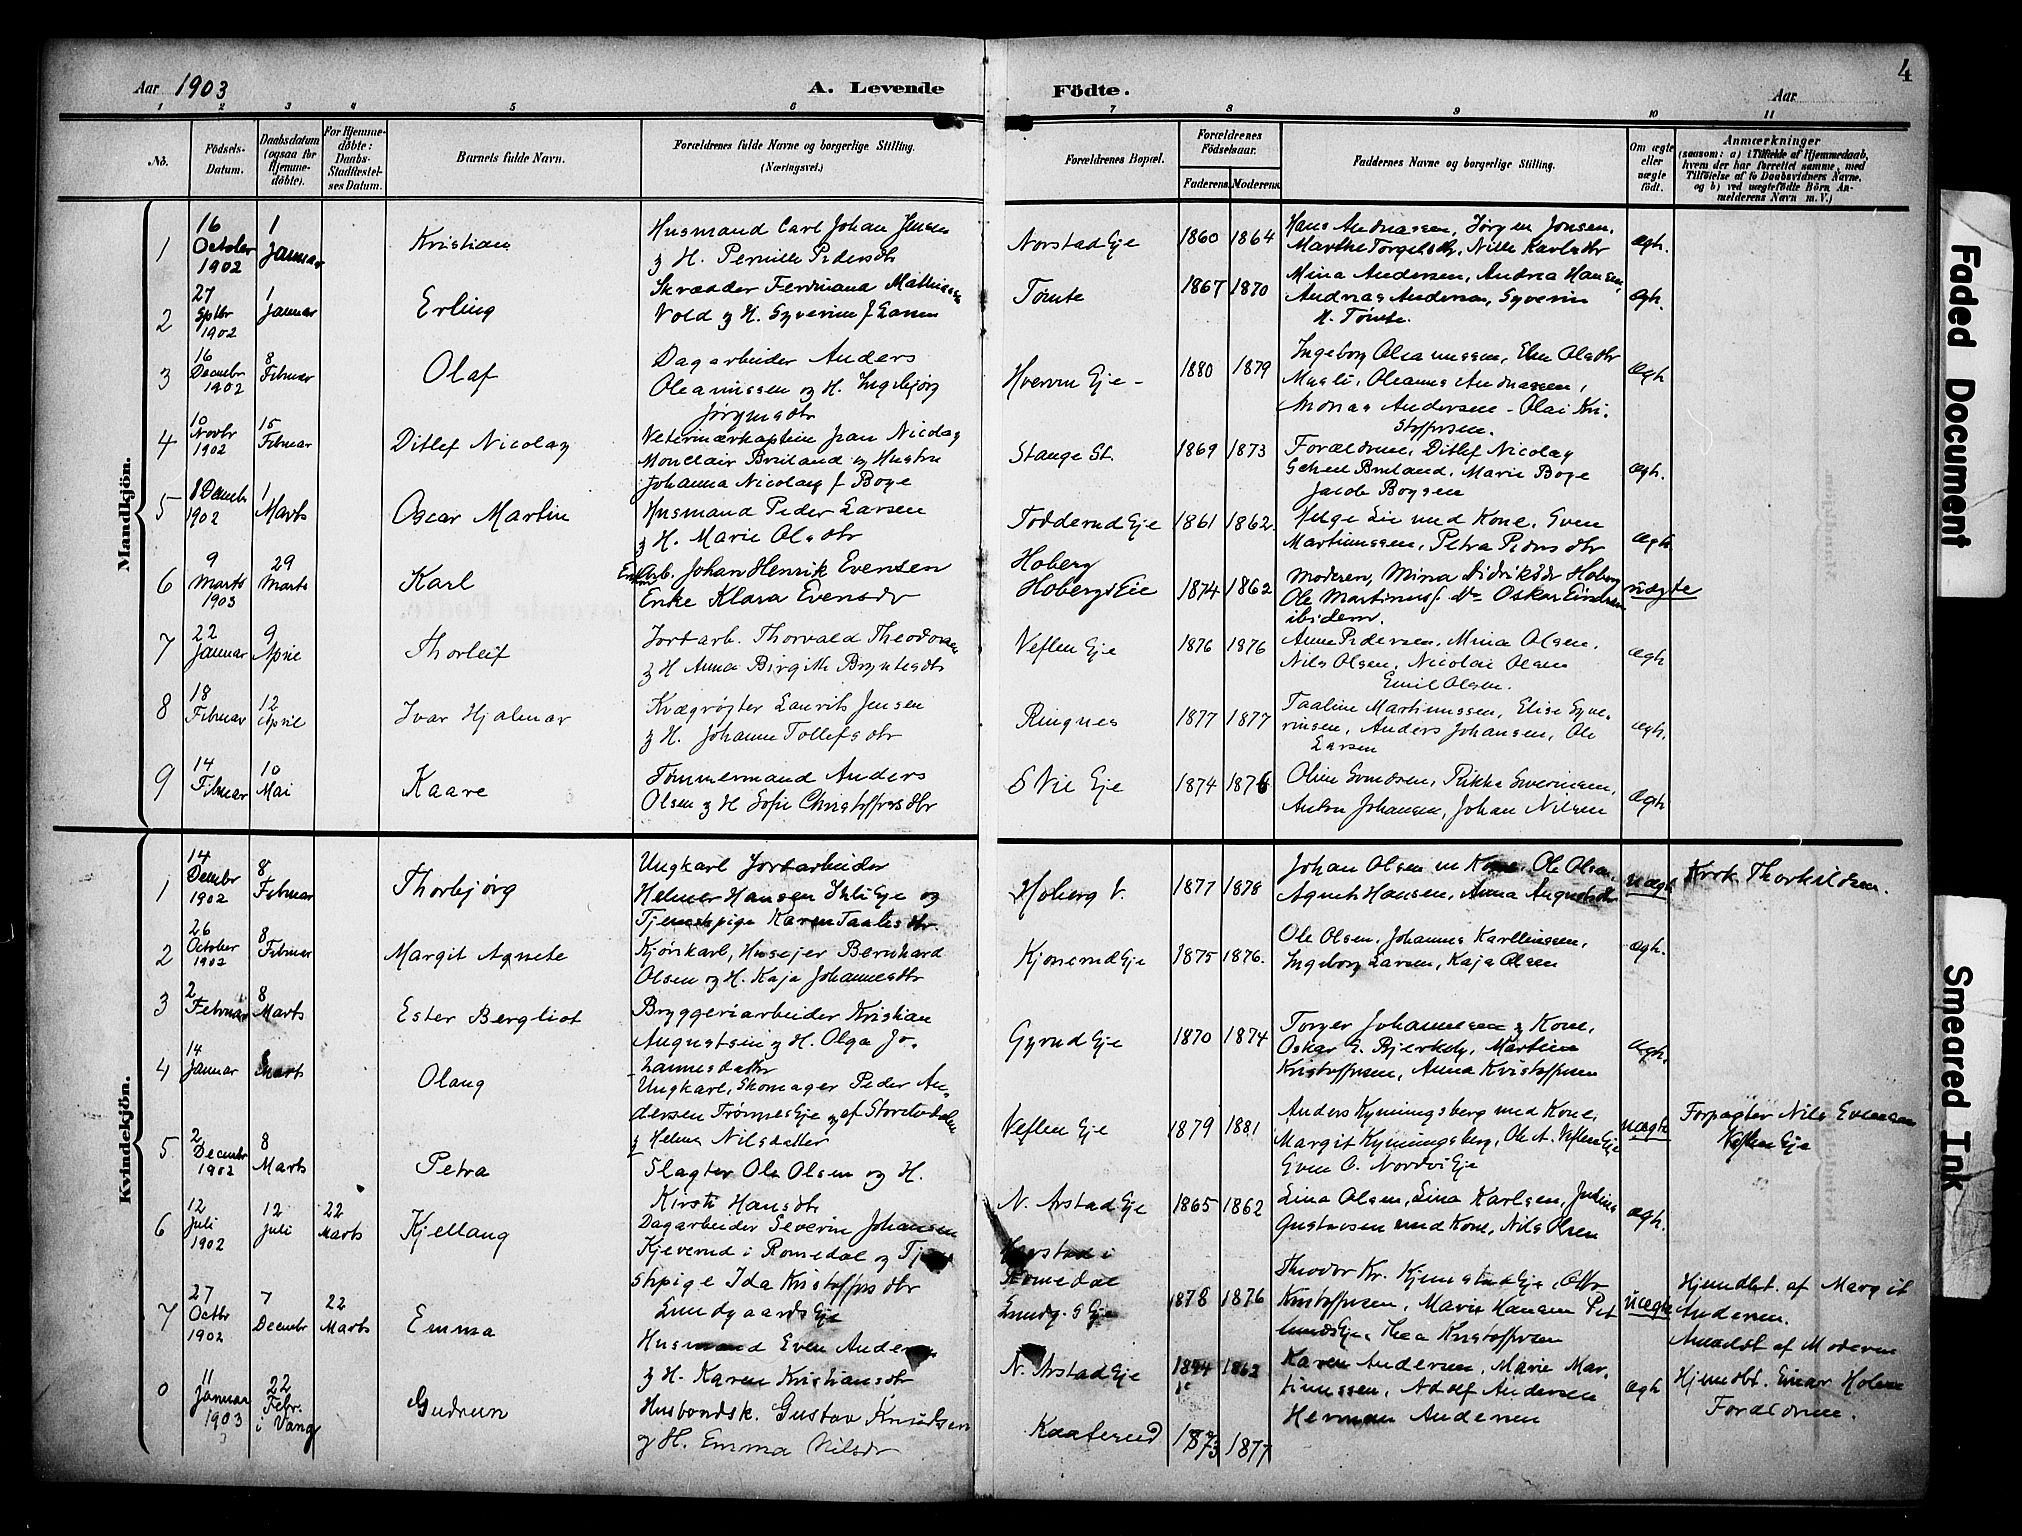 4
Aar 1903
A. Levende
Födte.
Aar
1 2 3 4 5 6 7 8 9 10 11
No.
Födsels-
Datum.
Daabsdatum
(ogsaa for
Hjemme-
döbte).
For Hjemme-
döbte:
Daabs-
Stadfæstel-
ses Datum.
Barnets fulde Navn.
Forældrenes fulde Navne og borgerlige Stilling.
(Næringsvei.)
Forældrenes Bopæl.
Forældrenes
Födselsaar.
Faderens. Moderens.
Faddernes Navne og borgerlige Stilling.
Om ægte
eller
uægte
födt.
Anmærkninger
(saasom: a) i Tilfælde af Hjemmedaab,
hvem der har forrettet samme, med
Tilföielse af to Daabsvidners Navne,
og b) ved uægtefödte Börn An-
melderens Navn m. V.)
Mandkjön.
1
16
October
1902
1
Januar
Kristian
Husmand Carl Johan Jensen
& H. Pernille Pedersdtr
Norstad Eje
1860 1864
Hans Andreassen, Jørgen Jonsen,
Marthe Torgelsdtr, Nille Karlsdtr
ægt.
2
27
Sptbr
1902
1
Januar
Erling
Skrædder Ferdinand Mathisen
Vold & H. Syverine f Larsen
Tomte
1867 1870
Mina Andersen, Andrea Hansen,
Andreas Andersen, Syverin
H. Tomte.
ægt.
3
16
Decembr
1902
8
Februar
Olaf
Dagarbeider Anders
Oleanussen og H. Ingebjørg
Jørgensdtr
Hverven Eje -
1880 1879
Ingeborg Oleanussen, Elen Olsdtr
Magli, Oleanus Andreassen,
Andreas Andersen - Olai Kri-
stoffersen.
ægt
4
10
Novbr
1902
15
Februar
Ditlef Nicolay
Veterinærkaptein Jean Nicolay
Monclair Bruland og Hustru
Johanna Nicolay f Boye
Stange St.
1869 1873
Forældrene, Ditlef Nicolay
Bruland, Marie Boye
Jacob Boysen
ægt.
5
8 Decembr
1902
1
Marts
Oscar Martin
Husmand Peder Larsen
& H. Marie Olsdtr
Todderud Eje
1861 1862.
Helge Lie med Kone, Even
Martinussen, Petra Pedersdtr
ægt
6
9
Marts
1903
29
Marts
Karl
Enkem. Arb. Johan Henrik Evensen
Enke Klara Evensdtr
Hoberg
Hobergs Eie
1874 1862
Moderen, Mina Didriksdr Hoberg
Ole Martinus f. Oskar
ibidem.
uægte
7
22
Januar
9
April
Thorleif
Jordarb. Thorvald Theodorsen
& H Anna Birgith Bryntesdtr
Veflen Eje
1876 1876
Anne Pedersen, Mina Olsen,
Nils Olsen, Nicolai Olsen
Emil Olsen.
ægt.
8
18
Februar
12
April
Ivar Hjalmar
Kvægrøgter Laurits Jensen
& H. Johanne Tollefsdtr
Ringnes
1877 1877
Taaline Martinussen, Elise Syve-
rinsen, Anders Johansen, Ole
Larsen
ægt.
9
14
Februar
10
Mai
Kaare
Tømmermand Anders
Olsen & H Sofie Christoffersdtr
S Vie Eje
1874 1876
Oline Svendsen, Rikka Severinsen,
Anton Johansen, Johan Nilsen
ægt
Kvindekjön.
1
14
Decmbr
1902
8
Februar
Thorbjørg
Ungkarl Jordarbeider
Helmer Hansen Eje og
Tjenestepige Karen Taalesdtr
Hoberg V.
1877 1878
Johan Olsen m Kone, Ole Olsen,
Agnete Hansen, Anna Augustsdtr
uægt
Krok Thorkildsen.
2
26
October
1902
8
Februar
Margit Agnete
Kjørekarl, Husejer Bernhard
Olsen og H. Kaja Johannesdtr
Kjonerud Eje
1875 1876.
Ole Olsen, Johannes Karlinssen,
Ingeborg Larsen, Kaja Olsen
ægt.
3
2
Februar
8
Marts
Ester Bergliot
Bryggeriarbeider Kristian
Augustsen & H. Olga Jo-
hannesdatter
Gyrud Eje
1870 1874
Torger Johannesen & Kone,
Oskar E. Bjerkely, Martin
Kristoffersen, Anna Kristoffersen
ægt.
4
14
Januar
8
Marts
Olaug
Ungkarl, Skomager Peder An-
dersen Trønnes Eje af Storelvdalen
& Helene Nilsdatter
Veflen Eje
1879 1881
Anders Kynningsberg med Kone,
Margit Kynningsberg, Ole A. Veflen Eje
Even O. Nordvi Eje
uægte
Forpagter Nils Evensen
Veflen Eje
5
2
Decembr
1902
8
Marts
Petra
Slagter Ole Olsen og H.
Kirsti Hansdtr
N. Arstad Eje
1865 1862
Lina Olsen, Lina Karlsen, Julius
Gustavsen med Kone, Nils Olsen
ægt.
6
12
Juli
1902
12
Juli
22
Marts
Kjellaug
Dagarbeider Severin Johansen
Kjeverud i Romedal og Tjene-
stepige Ida Kristoffersdtr
Lundgaards Eje
Harstad i
Romedal
Lundg.s Eje
1878 1876
Theodor Kr. Kjenstad Eje, Otto
Kristoffersen, Marie Hansen
Eje, Thea Kristoffersen
uægte
Hjemdbt. af Margit
Andersen.
Anmeldt af Moderen
7
27
Octbr
1902
7
Decembr
22
Marts
Emma
Husmand Even Andersen
& H. Karen Kristiansdtr
N. Arstad Eje
1862
Karen Andersen, Marie Mar-
tinussen, Adolf Andersen
Herman Andersen
ægt
Hjemdbt. Einar Holene
Forældrene.
0
11
Januar
1903
22
Febr.
i Vang
Gudrun
Husbondsk. Gustav Knudsen
og H. Emma Nilsdtr
Kaaterud
1873 1877
Faded Document
Smeared Ink